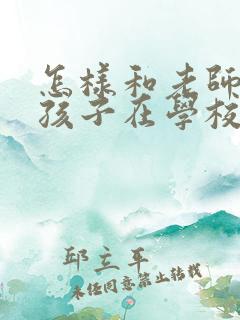 怎樣和老師
孩子在學校
邱立平
未經同意禁止轉載